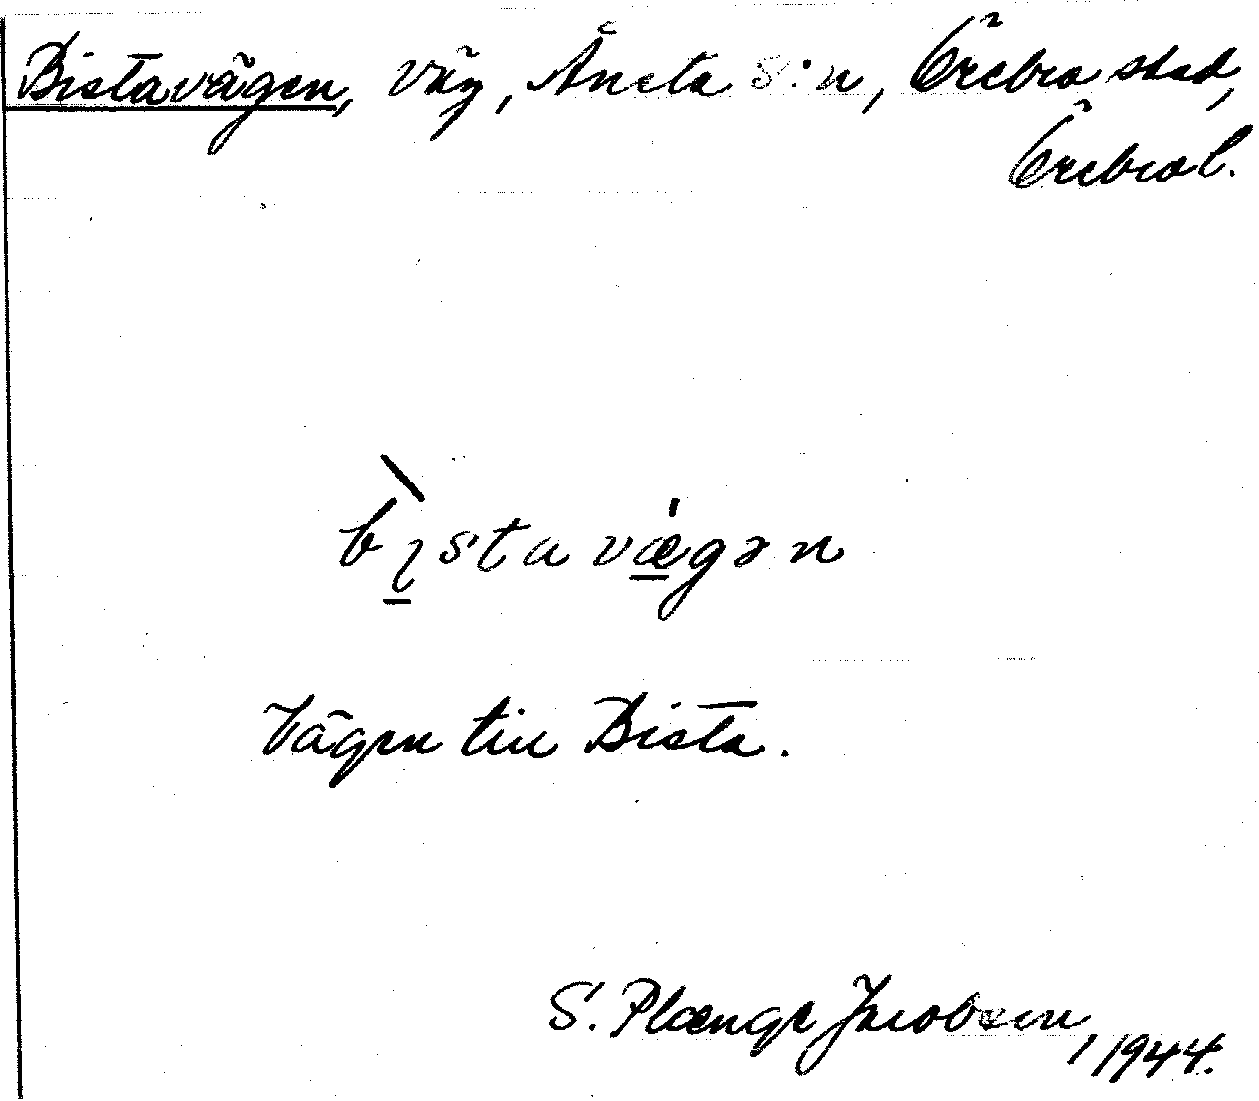 Bistavägen, väg, Ånsta s:n, Örebro stad,
Örebro l.
bịstavægən
Vägen till Bista.
S. Plænge Jacobson, 1944.